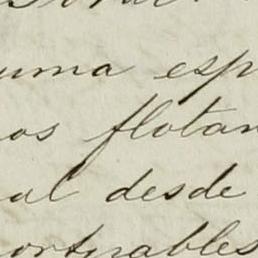 uma esp
os flotan
al desde
ortunables